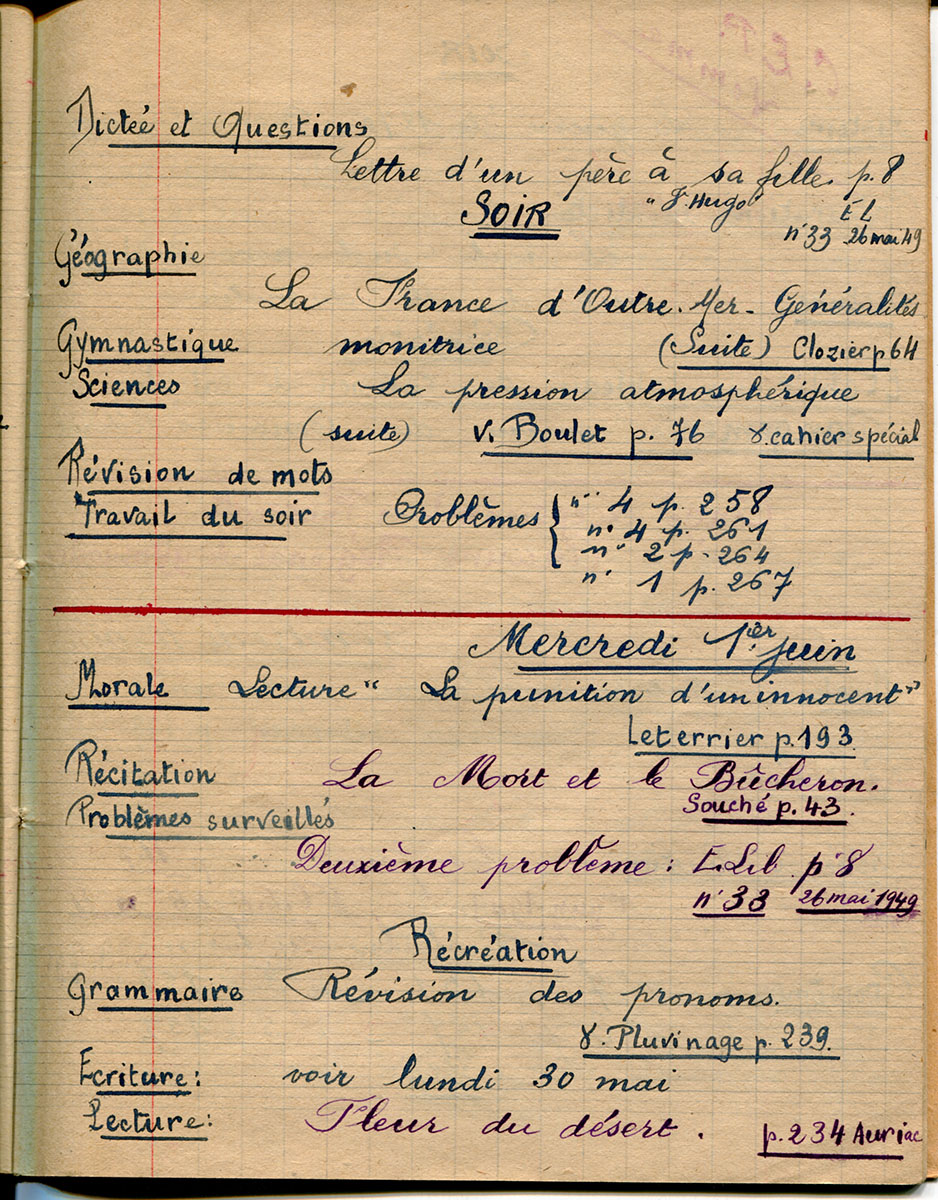 Dictée et Questions
Lettre d'un père à sa fille. p.8
SOIR "V. Hugo" E L
n° 33 26 mai 49
Géographie
La France d'Outre-Mer - Généralités
Gymnastique monitrice (Suite) Clozier p 64
Sciences La pression atmosphérique
(suite) v. Boulet p. 76 v. cahier spécial
Révision de mots
Travail du soir Problèmes { n° 4 p. 258
n° 4 p. 261
n° 2 p. 264
n° 1 p. 267
Mercredi 1er juin
Morale Lecture " La punition d'un innocent "
Leterrier p. 193
Récitation La Mort et le Bûcheron.
Souché p. 43.
Problèmes surveillés
Deuxième problème : E. Lib p 8
n° 33 26 mai 1949
Récréation
Grammaire Révision des pronoms.
v. Pluvinage p. 239.
Ecriture : voir lundi 30 mai
Lecture : Fleur du désert .
p. 234 Auriac